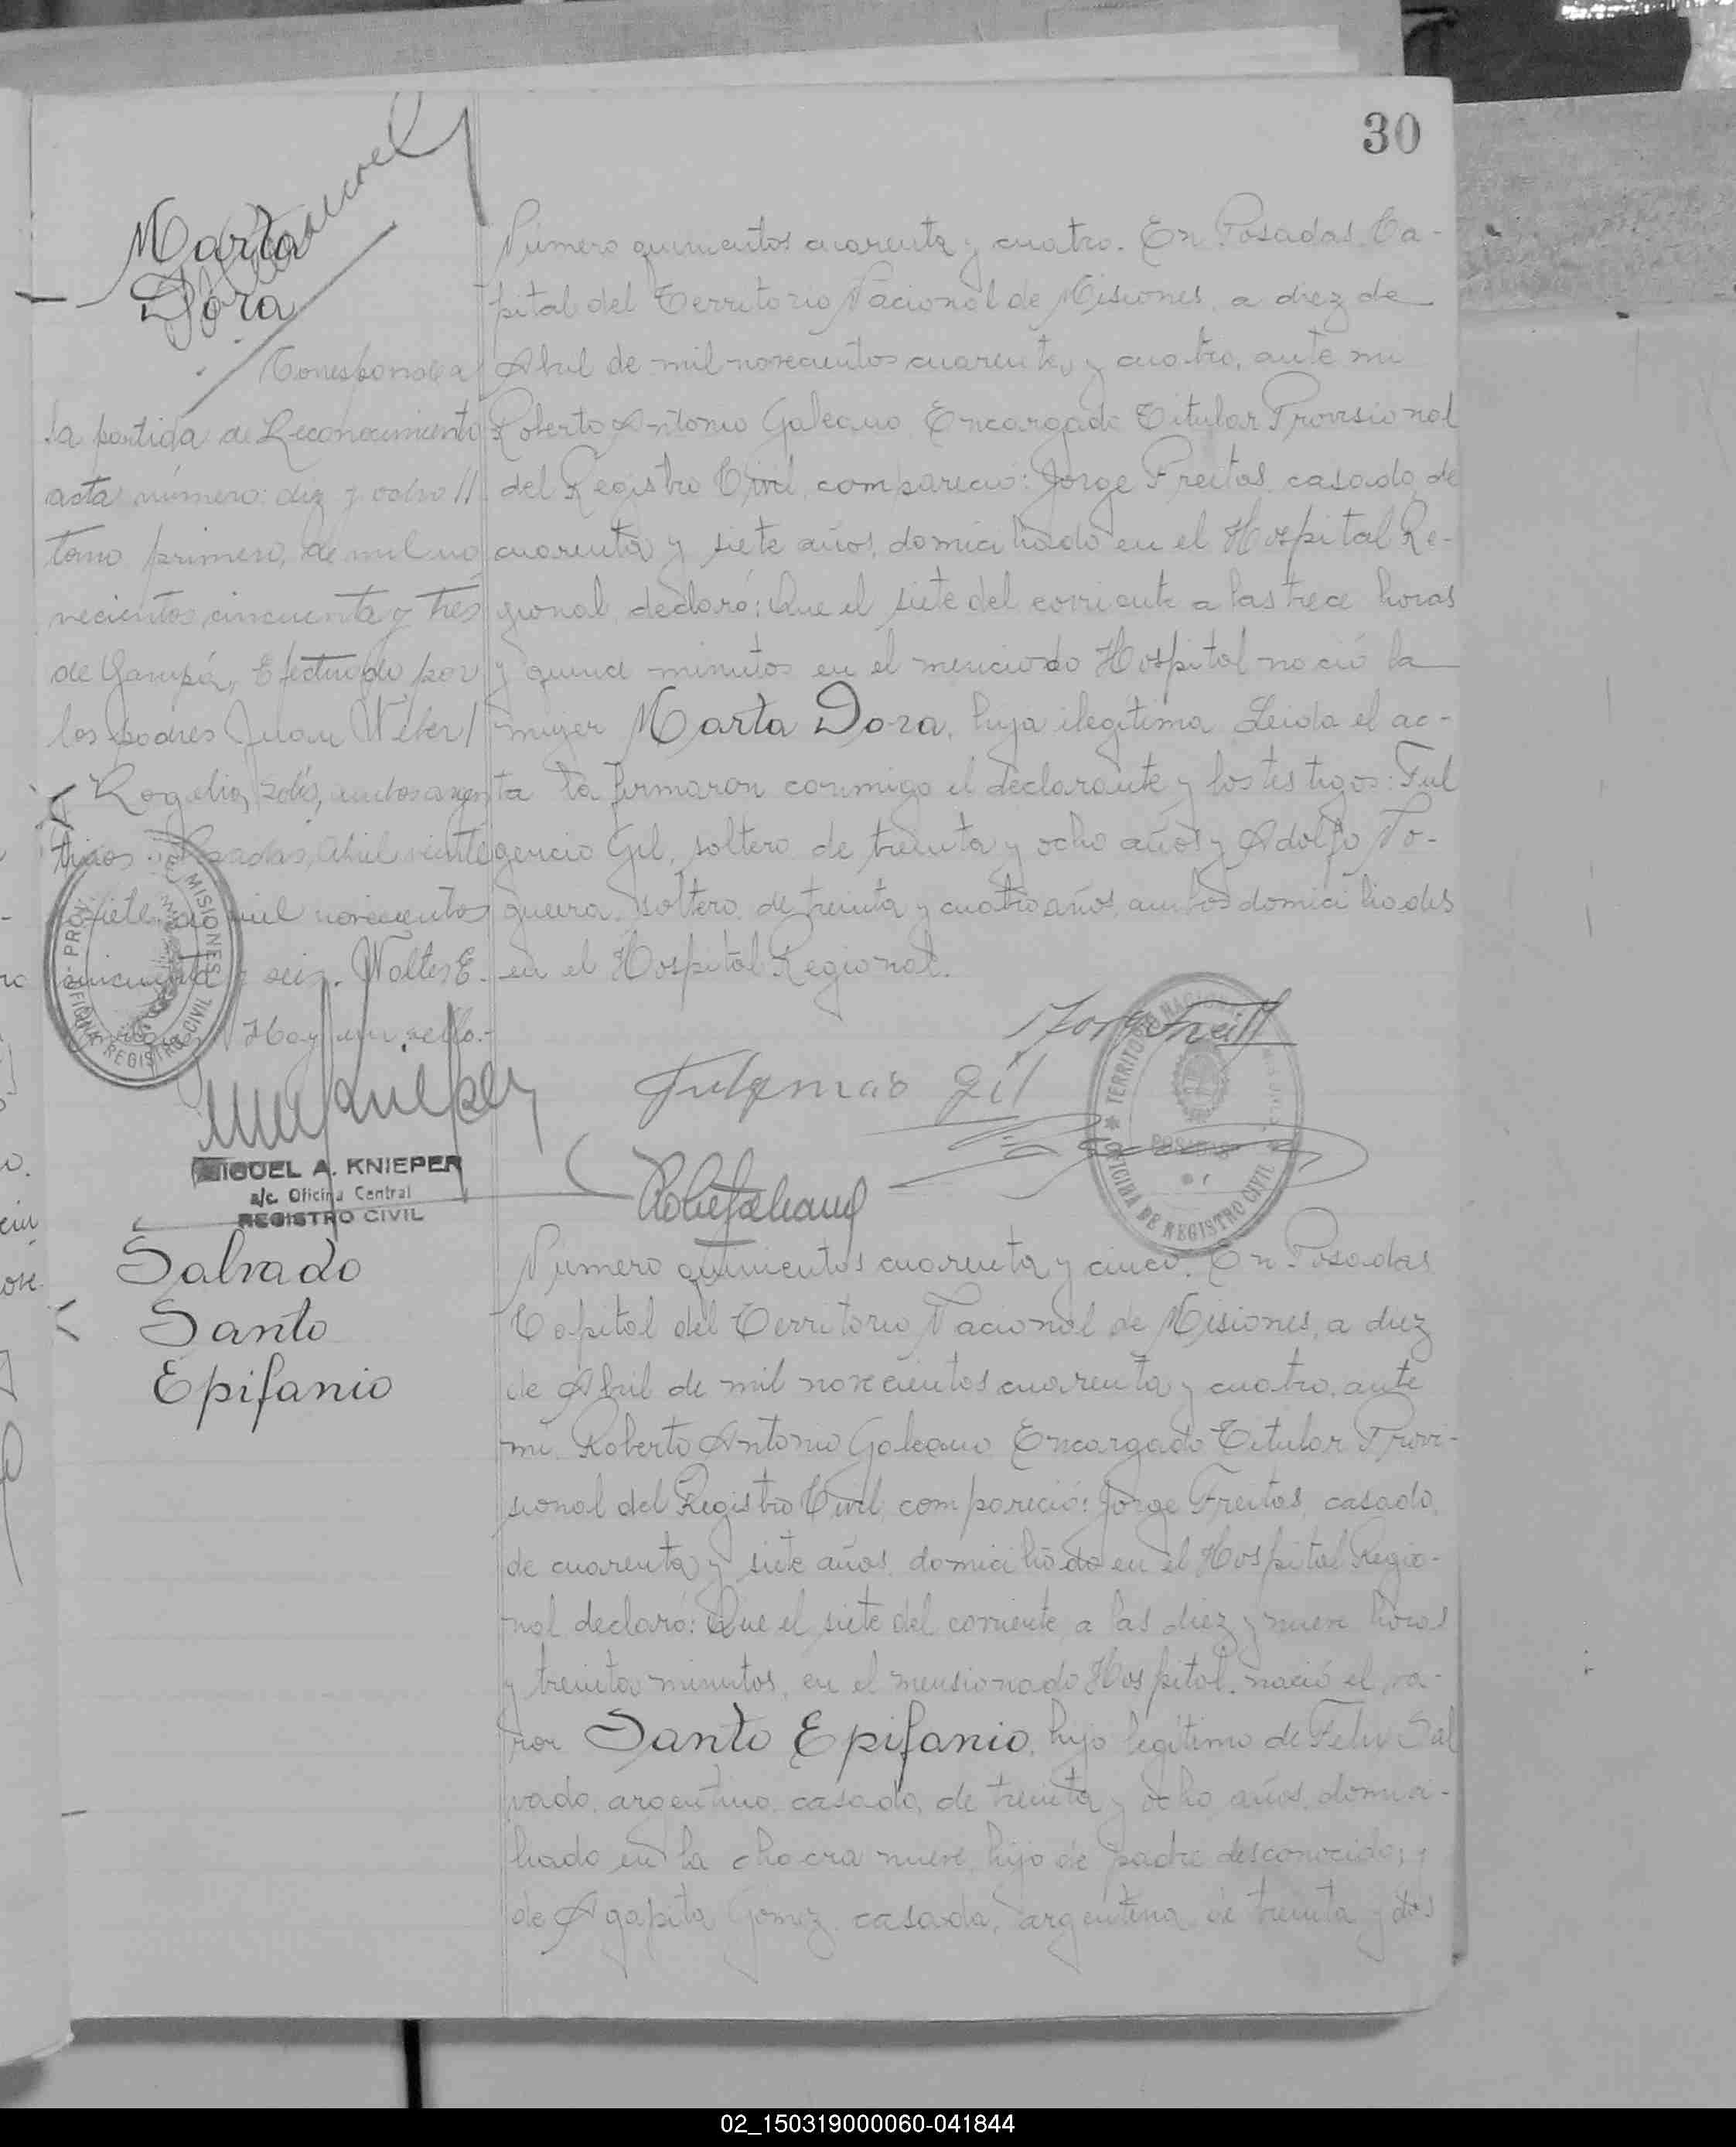 30
Marta
Dora
Corresponde a
la partida de Reconocimiento
acta número: diez y ocho //
tomo primero, de mil no
vecientos cincuenta y tres
de Garupá, Efectuado por
los padres Juan Weber /
Rogelia Solís, ambos argen
tinos. Posadas, Abril veinte
siete de mil novecientos
cincuenta y seis. Walter E.
Hay un sello.-
MIGUEL A. KNIEPER
a/c. Oficina Central
REGISTRO CIVIL
PROV. DE MISIONES
OFICINA REGISTRO CIVIL
Número quinientos cuarenta y cuatro. En Posadas, Ca-
pital del Territorio Nacional de Misiones, a diez de
Abril de mil novecientos cuarenta y cuatro, ante mi
Roberto Antonio Galeano Encargado Titular Provisional
del Registro Civil compareció: Jorge Freitas, casado, de
cuarenta y siete años, domiciliado en el Hospital Re-
gional, declaró: Que el siete del corriente a las trece horas
y quince minutos en el menciodo Hospital nació la
mujer Marta Dora, hija ilegítima. Leida el ac-
ta la firmaron conmigo el declarante y los testigos: Ful
gencio Gil, soltero de treinta y ocho años y Adolfo No-
gueira, soltero, de treinta y cuatro años, ambos domiciliados
en el Hospital Regional.
Jorge Freitas
Fulgencio Gil
TERRITORIO NACIONAL
POSADAS
OFICINA DE REGISTRO CIVIL
Salvado
Santo
Epifanio
Número quinientos cuarenta y cinco. En Posadas
Capital del Territorio Nacional de Misiones, a diez
de Abril de mil novecientos cuarenta y cuatro, ante
mi Roberto Antonio Galeano Encargado Titular Provi-
sional del Registro Civil, compareció: Jorge Freitas, casado,
de cuarenta y siete años, domiciliado en el Hospital Regio-
nal declaró: Que el siete del corriente, a las diez y nueve horas
y treinta minutos, en el mensionado Hospital, nació el va-
ron Santo Epifanio, hijo legítimo de Felix Sal
vado, argentino, casado, de treinta y ocho años, domici-
liado en la chacra nueve, hijo de padre desconocido; y
de Agapita Gomez, casada, argentina, de treinta y dos
02_150319000060-041844